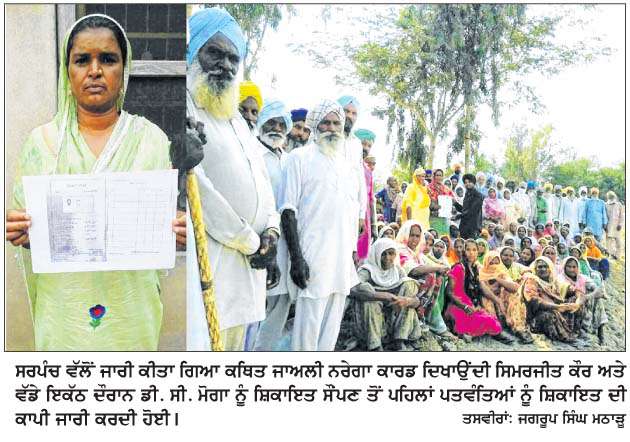 ਸਰਪੰਚ ਵੱਲੋਂ ਜਾਰੀ ਕੀਤਾ ਗਿਆ ਕਥਿਤ ਜਾਅਲੀ ਨਰੇਗਾ ਕਾਰਡ ਦਿਖਾਉਂਦੀ ਸਿਮਰਜੀਤ ਕੌਰ ਅਤੇ
ਵੱਡੇ ਇਕੱਠ ਦੌਰਾਨ ਡੀ. ਸੀ. ਮੋਗਾ ਨੂੰ ਸ਼ਿਕਾਇਤ ਸੌਂਪਣ ਤੋਂ ਪਹਿਲਾਂ ਪਤਵੰਤਿਆਂ ਨੂੰ ਸ਼ਿਕਾਇਤ ਦੀ
ਕਾਪੀ ਜਾਰੀ ਕਰਦੀ ਹੋਈ।
ਤਸਵੀਰਾਂ: ਜਗਰੂਪ ਸਿੰਘ ਮਠਾੜੂ